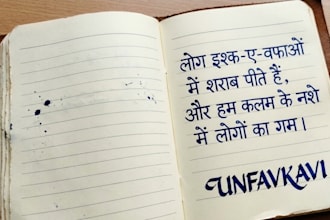 लोग इश्क-ए-वफाओं
में शराब पीते हैं,
और हम कलम के नशे
में लोगों का गम।
UNFAVKAVI